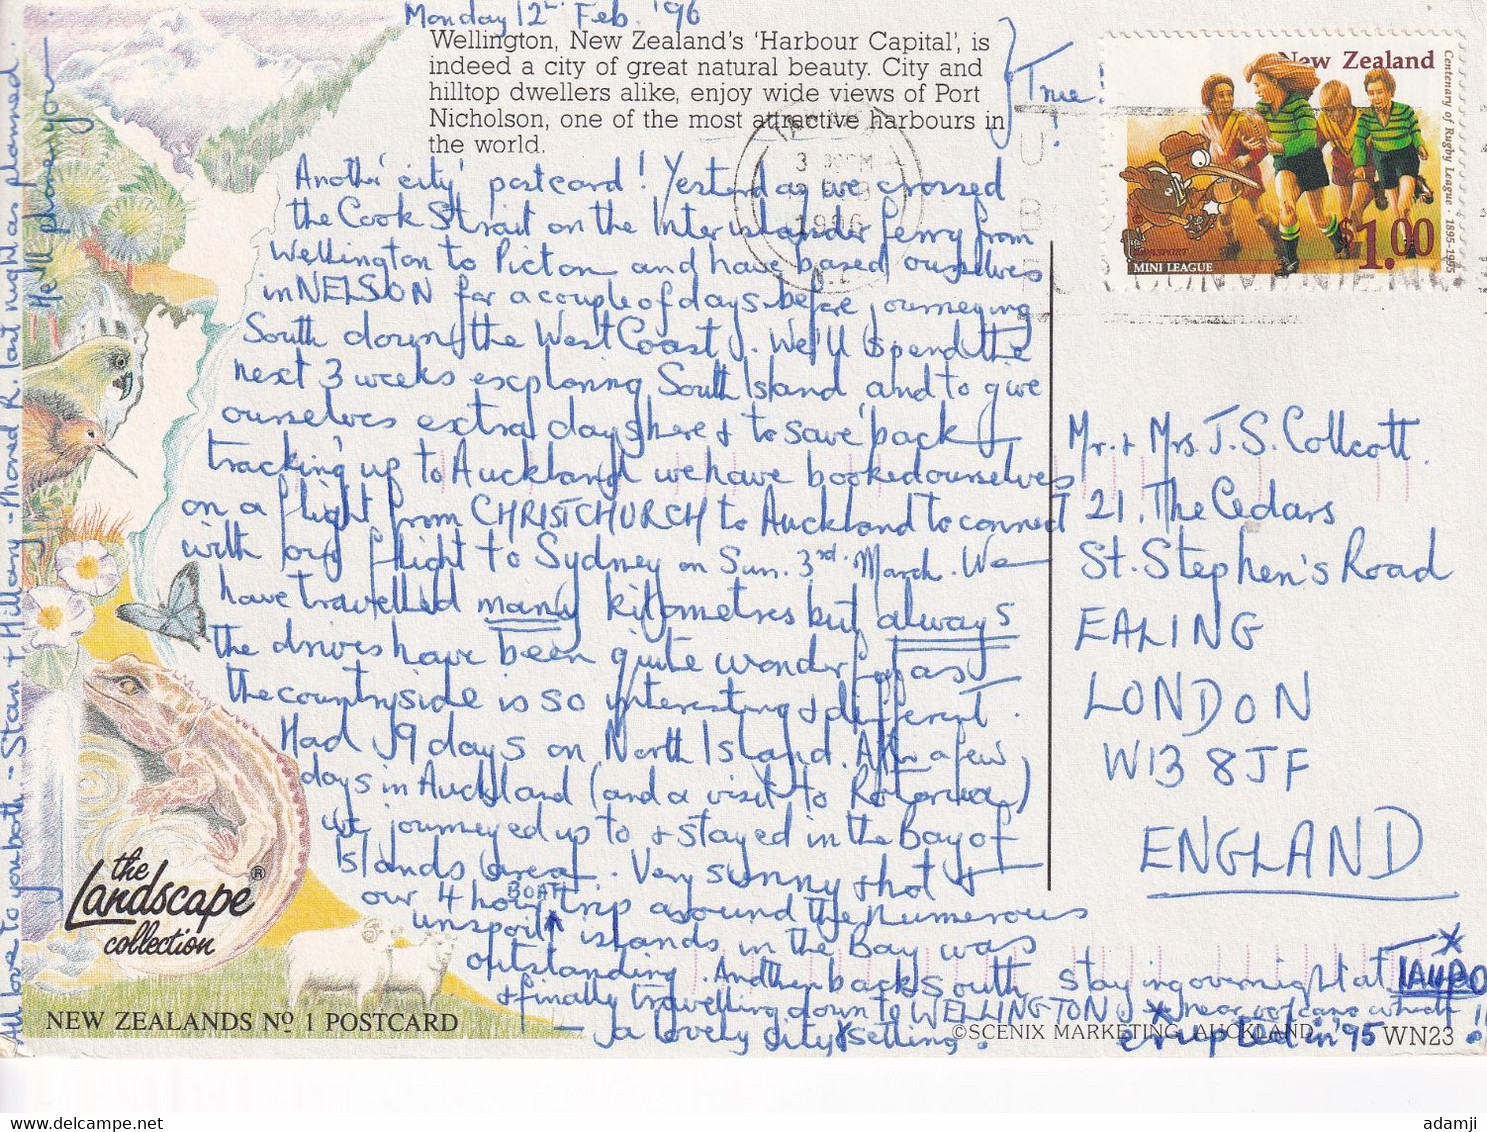 Monday 12th Feb. '96
Wellington, New Zealand's 'Harbour Capital', is
indeed a city of great natural beauty. City and
hilltop dwellers alike, enjoy wide views of Port
Nicholson, one of the most attractive harbours in
the world.
True!
Another 'city' postcard! Yesterday we crossed
the Cook Strait on the Interislander ferry from
Wellington to Picton and have based ourselves
in NELSON for a couple of days before journeying
South down the West Coast. We'll spend the
next 3 weeks exploring South Island and to give
ourselves extra days here & to save 'back
tracking' up to Auckland we have booked ourselves
on a flight from CHRISTCHURCH to Auckland to connect
with our flight to Sydney on Sun. 3rd. March. We
have travelled many kilometres but always
the drives have been quite wonderful as
the countryside is so interesting & different.
Had 19 days on North Island. After a few
days in Auckland (and a visit to Rotorua)
we journeyed up to & stayed in the Bay of
Islands area. Very sunny & hot &
our 4 hour BOAT trip around the numerous
unspoilt islands in the Bay was
outstanding. And then back South staying overnight at TAUPO *
& finally travelling down to WELLINGTON * near volcano which
— a lovely city & setting! erupted in '95!!
All love to you both - Stan & Hilary - Phoned R. last night as planned.
He'll phone you
New Zealand
Centenary of Rugby League · 1895-1995
$1.00
MINI LEAGUE
3
1996
N.Z
Mr. & Mrs. J. S. Collcott.
21, The Cedars
St. Stephen's Road
EALING
LONDON
W13 8JF
ENGLAND
the
Landscape ®
collection
NEW ZEALANDS Nº 1 POSTCARD
©SCENIX MARKETING, AUCKLAND
WN23
adamji